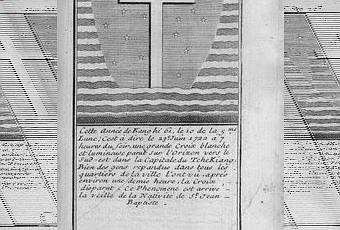 Cette Année de Kanghi 61, le 10 de la 5me
Lune; C'est à dire le 23e Juin 1722 à 7
heures du soir, une grande Croix blanche
et lumineuse parut sur l'Orizon vers le
Sud-est dans la Capitale du TcheKiang.
Bien des gens repandus dans tous les
quartiers de la ville l'ont vû, après
environ une demie heure, la Croix
disparut; Ce Phenomene est arrivé
la veille de la Nativité de St. Jean-
Baptste.